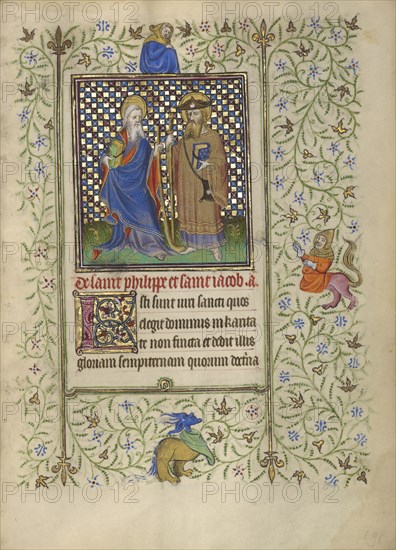 De saint philippe et saint iacob. a.
Isti sunt uiri sancti quos
elegit dominus in karita
te non ficta et dedit illis
gloriam sempiternam quorum doctrina
PHOTO12